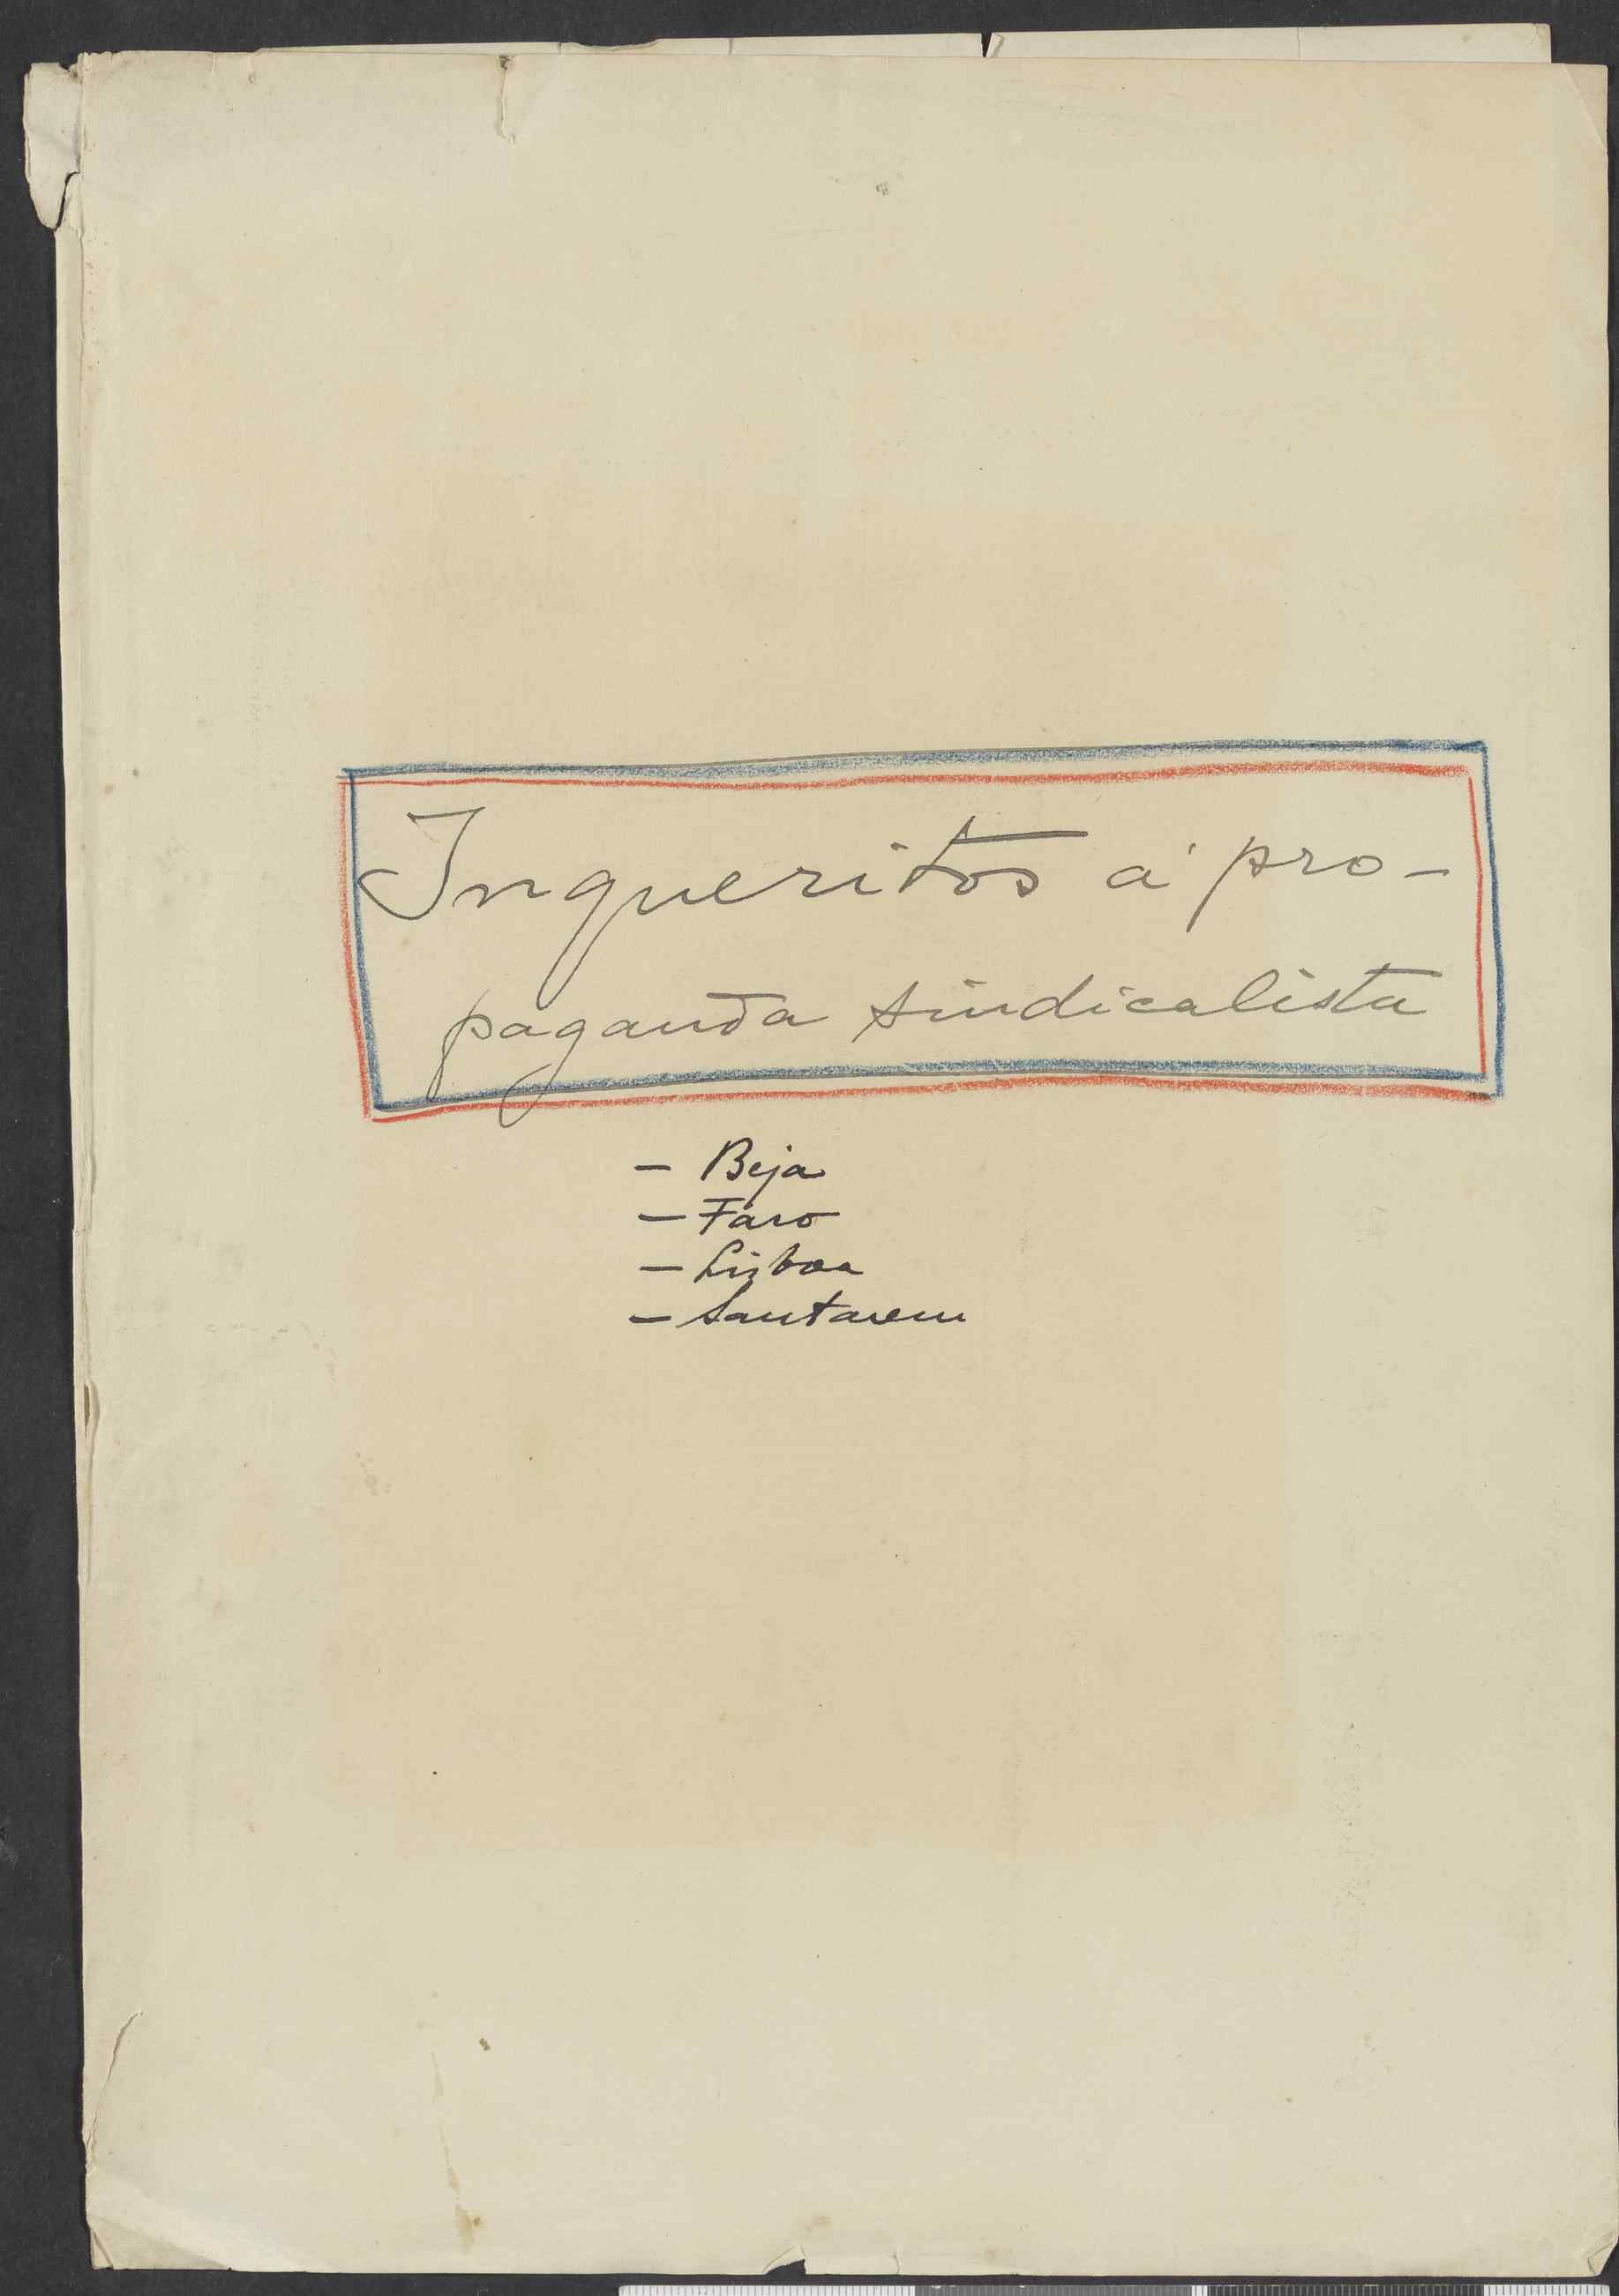 Inqueritos á pro-
paganda sindicalista
- Beja
- Faro
- Lisboa
- Santarem